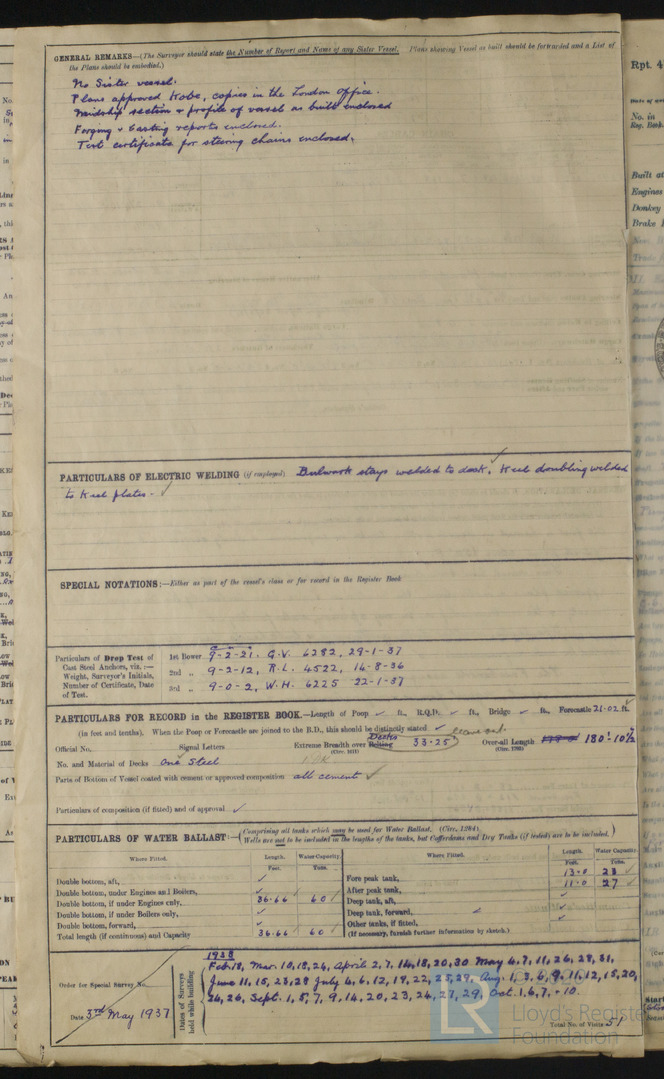 GENERAL REMARKS—(The Surveyor should state the Number of Report and Name of any Sister Vessel. Plans shewing Vessel as built should be forwarded and a List of
the Plans should be embodied.)
No Sister vessel.
Plans approved Kobe, copies in the London Office.
Midship section & profile of vessel as built enclosed
Forging & Casting reports enclosed.
Test certificate for steering chains enclosed.
PARTICULARS OF ELECTRIC WELDING (if employed) Bulwark stays welded to deck. Keel doubling welded
to Keel plates.
SPECIAL NOTATIONS:—Either as part of the vessel's class or for record in the Register Book
Particulars of Drop Test of
Cast Steel Anchors, viz.:—
Weight, Surveyor's Initials,
Number of Certificate, Date
of Test.
1st Bower 9-2-21. G.V. 6282, 29-1-37
2nd „ 9-2-12, R.L. 4522, 14-8-36
3rd „ 9-0-2, W.H. 6225 22-1-37
PARTICULARS FOR RECORD in the REGISTER BOOK.—Length of Poop ✓ ft., R.Q.D. ✓ ft., Bridge ✓ ft., Forecastle 21.02 ft.
(in feet and tenths). When the Poop or Forecastle are joined to the B.D., this should be distinctly stated ✓
Official No. Signal Letters Extreme Breadth over Belting 33.25 Over-all Length 180'-10½
(Circ. 1611) (Circ. 1703)
No. and Material of Decks One Steel
Parts of Bottom of Vessel coated with cement or approved composition all cement ✓
Particulars of composition (if fitted) and of approval ✓
PARTICULARS OF WATER BALLAST:—(Comprising all tanks which may be used for Water Ballast. (Circ. 1284).
Wells are not to be included in the lengths of the tanks, but Cofferdams and Dry Tanks (if tested) are to be included.)
Where Fitted. Length. Water-Capacity. Where Fitted. Length. Water Capacity.
Feet. Tons. Feet. Tons.
Double bottom, aft, ✓ Fore peak tank, 13.0 23 ✓
Double bottom, under Engines and Boilers, ✓ After peak tank, 11.0 27 ✓
Double bottom, if under Engines only, 36.66 60 Deep tank, aft, ✓
Double bottom, if under Boilers only, ✓ Deep tank, forward, ✓
Double bottom, forward, ✓ Other tanks, if fitted, ✓
Total length (if continuous) and Capacity 36.66 60 (If necessary, furnish further information by sketch.)
Order for Special Survey No.
Date 3rd May 1937
Dates of Surveys
held while building
1938
Feb 18, Mar. 10, 18, 24, April 2, 7, 14, 18, 20, 30 May 4, 7, 11, 26, 28, 31,
June 11, 15, 23, 28 July 4, 6, 12, 19, 22, 25, 29, Aug. 1, 3, 6, 9, 11, 12, 15, 20,
24, 26, Sept. 1, 5, 7, 9, 14, 20, 23, 24, 27, 29, Oct. 1, 6, 7, + 10.
Total No. of Visits 51
LR
Lloyd's Register
Foundation
Rpt. 4
No. in
Reg. Book.
Built at
Engines
Donkey